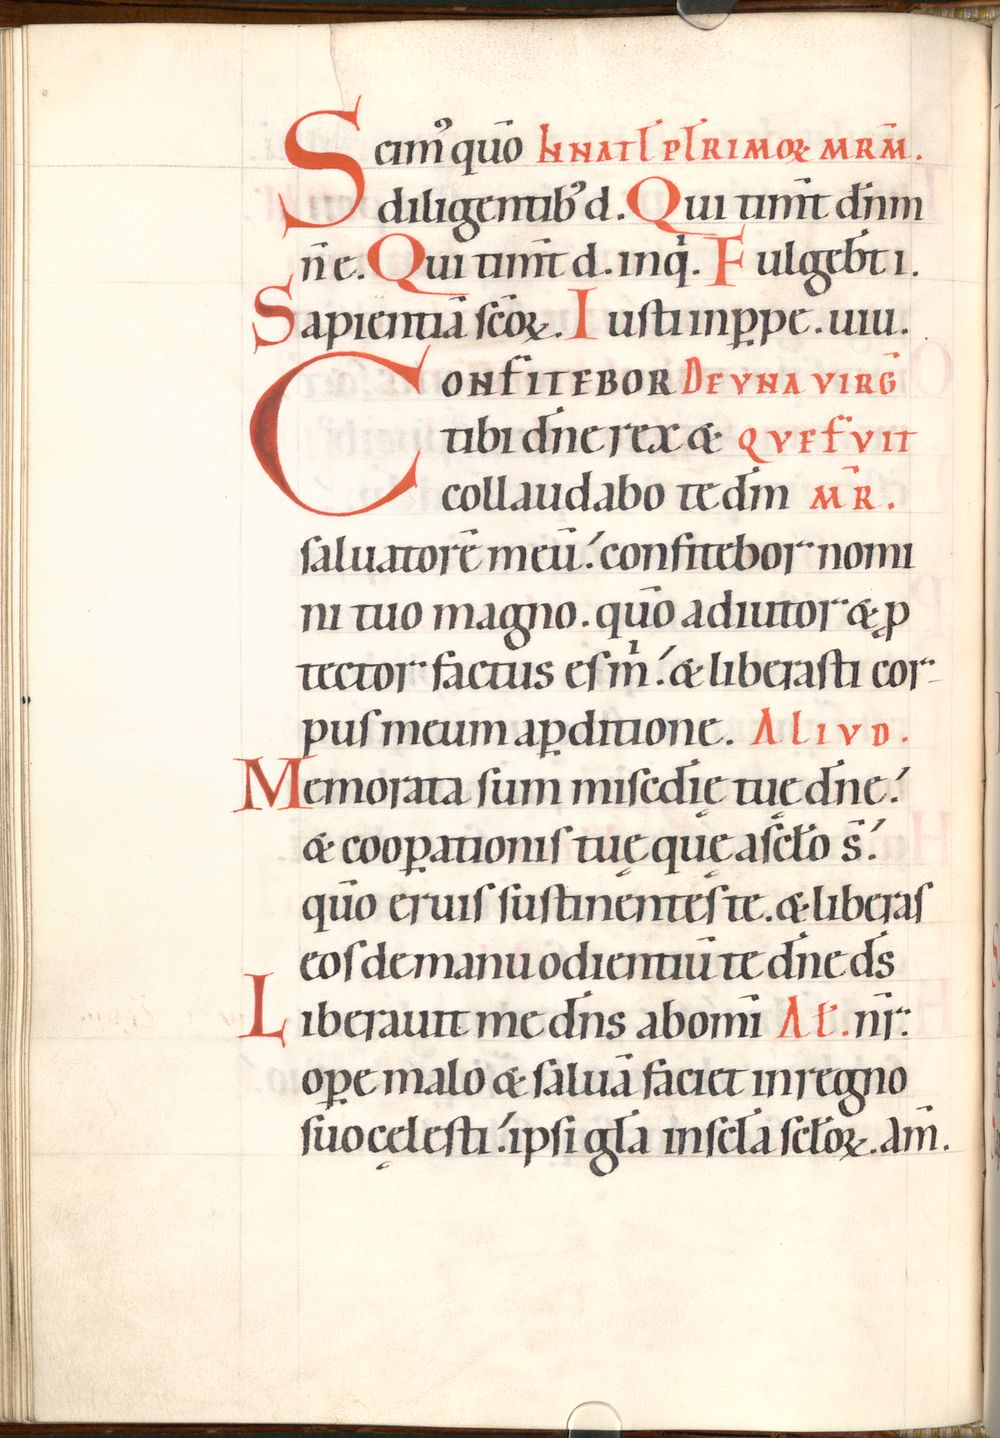 Scimꝰ quō In nat̄l pl̄rimoꝝ mr̄m.
diligentibꝰ d. Qui tim̄t dn̄m
n̄ e. Qui tim̄t d. inqͥ. Fulgeb̄t i.
Sapientiā sc̄oꝝ. Iusti in ꝑpe. uiu.
Confitebor De una virg̅
tibi dn̄e rex & que fuit
collaudabo te dm̄ mr̄.
saluatorē meū: confitebor nomi
ni tuo magno. quō adiutor & ꝓ
tector factus es mͥ: & liberasti cor-
pus meum a ꝑditione. Aliud.
Memorata sum misedıę tuę dn̄e:
& cooꝑationis tuę quę a scl̄o s̄:
quō eruis sustinentes te. & liberas
eos de manu odientiū te dn̄e ds̄
Liberauit me dn̄s ab omī At̄. nr̄:
opere malo & saluā faciet in regno
suo cęlesti: ipsi gl̄a in scl̄a scl̄oꝝ. am̄.